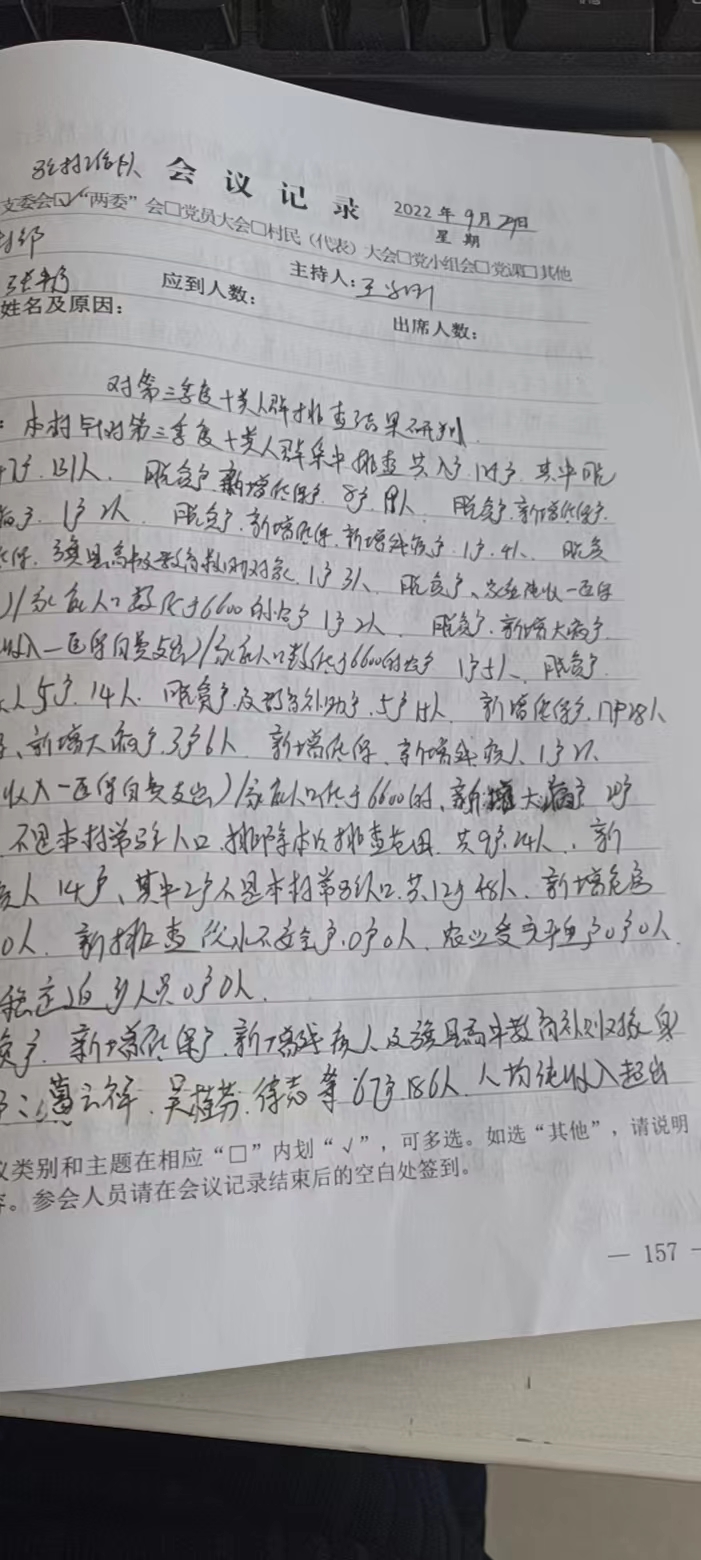 驻村工作队 会议记录 2022年9月29日
星期
支委会☑“两委”会□党员大会□村民（代表）大会□党小组会□党课□其他
村部 主持人：
应到人数：
姓名及原因： 出席人数：
对第三季度十类人群排查结果研判
：本村针对第三季度十类人群集中排查共入户 户，其中脱
131人、脱贫户、新增低保户 8户 人、脱贫户、新增低保户、
病户、1户2人、脱贫户、新增低保、新增残疾户、1户、4人、脱贫
低保、旗县高中及教育救助对象、1户3人、脱贫户、 纯收入一医保
)/家庭人口数低于6600的 户1户2人、脱贫户、新增大病户
收入一医保自费支出)/家庭人口数低于6600的 户1户5人、脱贫户
人5户、14人、脱贫户及教育补助户、5户 人、新增低保户、17户28人
、新增大病户、3户6人、新增低保、新增残疾人、1户2人
收入一医保自费支出)/家庭人口低于6600的、新增大病户 户
不是本村常驻人口、排除本次排查范围、共9户、24人、新
疾人14户、其中2户不是本村常驻人口、共12户48人、新增危房
0人、新排查饮水不安全户、0户0人、农业受灾 户0户0人、
稳定返乡人员0户0人、
贫户、新增低保户、新增残疾人及旗县高中教育补助对象
：云祥、吴桂芬、徐志 等67户186人、人均纯收入超出
议类别和主题在相应“□”内划“√”，可多选。如选“其他”，请说明
容。参会人员请在会议记录结束后的空白处签到。
— 157 —